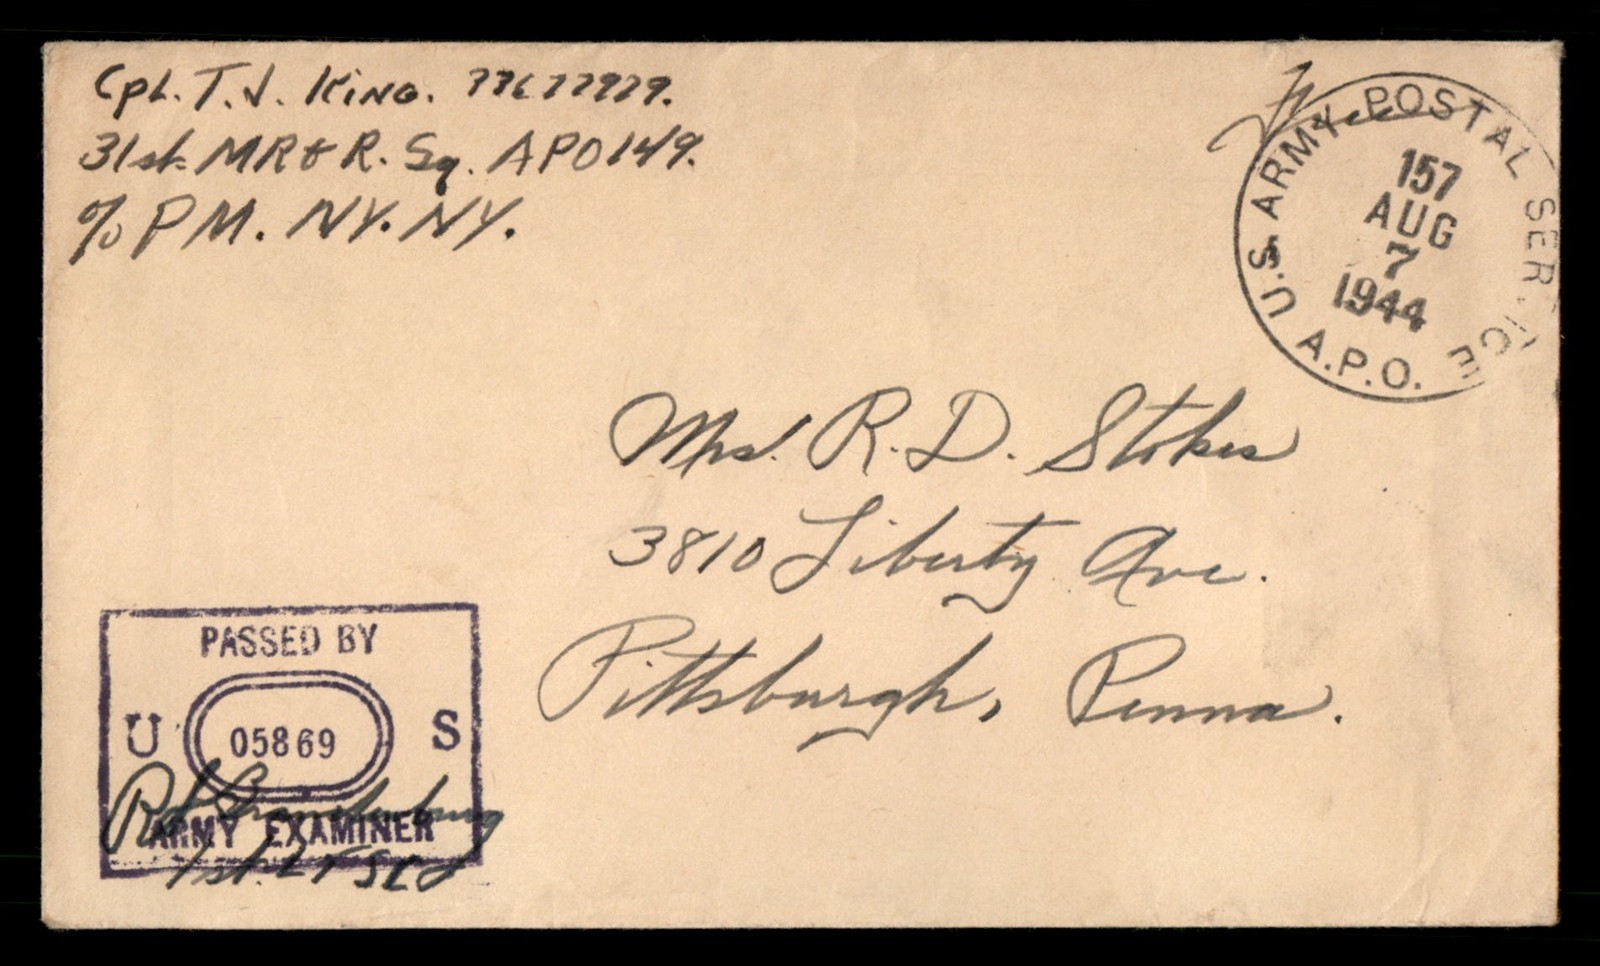 Cpl. T. J. King. 33677979.
31st MR & R. Sq. APO 149.
% PM. NY. NY.
Free
U.S. ARMY POSTAL SERVICE
A.P.O.
157
AUG
7
1944
Mrs. R. D. Stokes
3810 Liberty Ave.
Pittsburgh, Penna.
PASSED BY
U 05869 S
ARMY EXAMINER
Brandenburg
1st. Lt